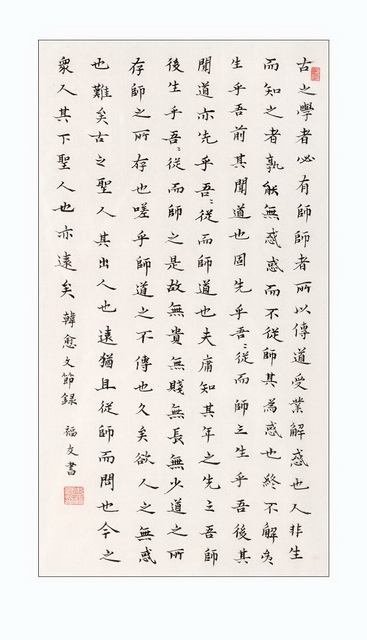 古之學者必有師師者所以傳道受業解惑也人非生
而知之者孰能無惑惑而不從師其為惑也終不解矣
生乎吾前其聞道也固先乎吾〻從而師之生乎吾後其
聞道亦先乎吾〻從而師道也夫庸知其年之先之吾師
後生乎吾〻從而師之是故無貴無賤無長無少道之所
存師之所存也嗟乎師道之不傳也久矣欲人之無惑
也難矣古之聖人其出人也遠猶且從師而問也今之
衆人其下聖人也亦遠矣 韓愈文節錄 福文書